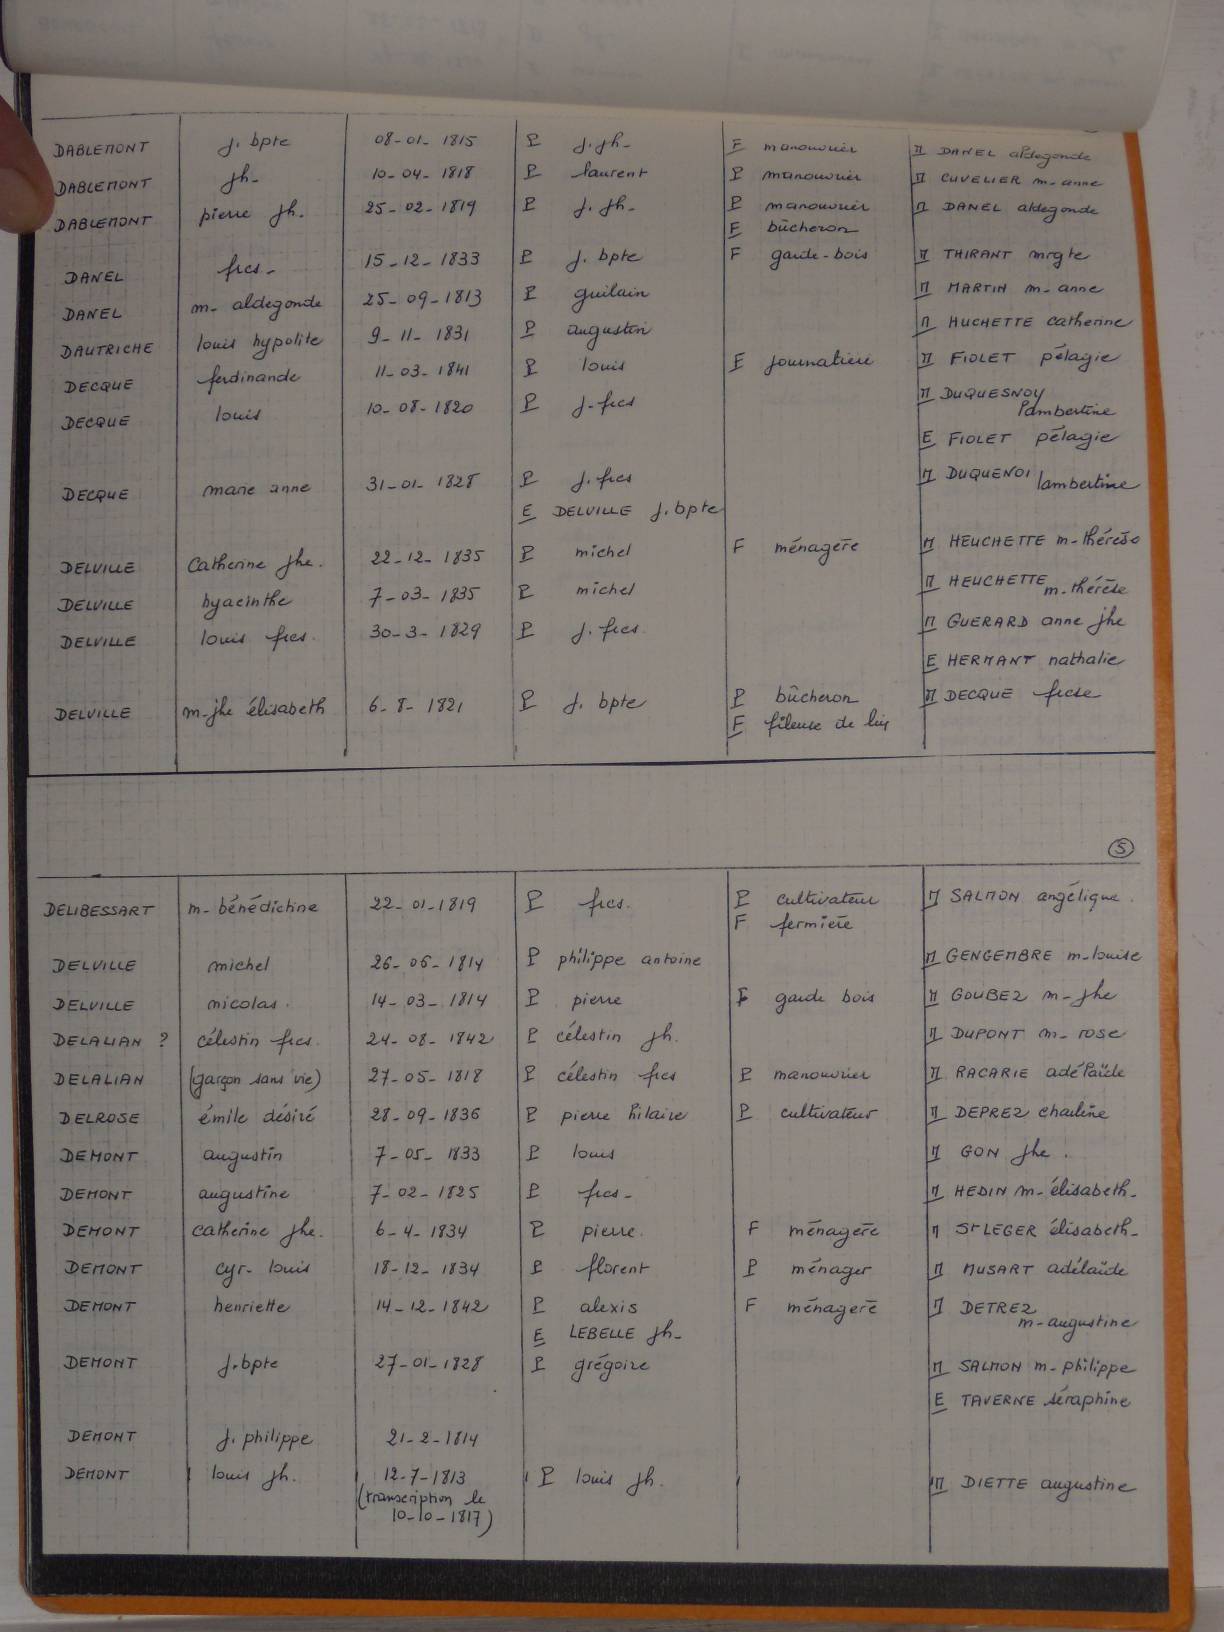 DABLEMONT j. bpte 08-01-1815 P j. jh- F manouvrier M DANEL aldegonde
DABLEMONT jh- 10-04-1818 P laurent P manouvrier M CUVELIER m-anne
DABLEMONT pierre jh. 25-02-1819 P j. jh- P manouvrier M DANEL aldegonde
E bûcheron
DANEL frcs- 15-12-1833 P j. bpte F garde-bois M THIRANT mrgte
DANEL m- aldegonde 25-09-1813 P guilain M MARTIN m-anne
DAUTRICHE louis hypolite 9-11-1831 P augustin M HUCHETTE catherine
DECQUE ferdinande 11-03-1841 P louis F journatière M FIOLET pélagie
DECQUE louis 10-08-1820 P j-frcs M DUQUESNOY
lambertine
E FIOLET pélagie
DECQUE marie anne 31-01-1828 P j. frcs M DUQUENOI lambertine
E DELVILLE j. bpte
DELVILLE catherine jhe. 22-12-1835 P michel F ménagère M HEUCHETTE m-thérèse
DELVILLE hyacinthe 7-03-1835 P michel M HEUCHETTE m-thérèse
DELVILLE louis frcs. 30-3-1829 P j. frcs. M GUERARD anne jhe
E HERMANT nathalie
DELVILLE m-jhe élisabeth 6-8-1821 P j. bpte P bûcheron M DECQUE frcse
F fileuse de lin
5
DELIBESSART m-bénédictine 22-01-1819 P frcs. P cultivateur M SALMON angélique.
F fermière
DELVILLE michel 26-06-1814 P philippe antoine M GENGEMBRE m-louise
DELVILLE nicolas. 14-03-1814 P pierre F garde bois M GOUBEZ m-jhe
DELALIAN ? célestin frcs. 24-08-1842 P célestin jh. M DUPONT m-rose
DELALIAN (garçon sans vie) 27-05-1818 P célestin frcs P manouvrier M RACARIE adélaïde
DELROSE émile désiré 28-09-1836 P pierre hilaire P cultivateur M DEPREZ charline
DEMONT augustin 7-05-1833 P louis M GON jhe.
DEMONT augustine 7-02-1825 P frcs- M HEDIN m-élisabeth-
DEMONT catherine jhe. 6-4-1834 P pierre. F ménagère M St LEGER élisabeth-
DEMONT cyr-louis 18-12-1834 P florent P ménager M MUSART adélaïde
DEMONT henriette 14-12-1842 P alexis F ménagère M DETREZ
m-augustine
E LEBELLE jh-
DEMONT j.bpte 27-01-1828 P grégoire M SALMON m-philippe
E TAVERNE séraphine
DEMONT j. philippe 21-2-1814
DEMONT louis jh. 12-7-1813 P louis jh. M DIETTE augustine
(transcription le
10-10-1817)